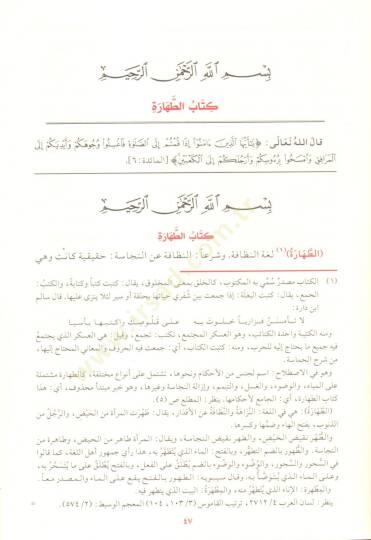 بِسْمِ اللَّهِ الرَّحْمَنِ الرَّحِيمِ
كِتَابُ الطَّهَارَةِ
قال اللهُ تَعَالَى: ﴿يَا أَيُّهَا الَّذِينَ ءَامَنُوٓا إِذَا قُمْتُمْ إِلَى الصَّلَوٰةِ فَاغْسِلُوا وُجُوهَكُمْ وَأَيْدِيَكُمْ إِلَى
الْمَرَافِقِ وَامْسَحُوا بِرُءُوسِكُمْ وَأَرْجُلَكُمْ إِلَى الْكَعْبَيْنِ﴾ [المائدة: ٦].
بِسْمِ اللَّهِ الرَّحْمَنِ الرَّحِيمِ
كِتَابُ الطَّهَارَةِ
(الطَّهَارَةُ)(١) لغة النظافة. وشرعاً: النظافة عن النجاسة: حقيقية كانت وهي
(١) الكتاب مصدرٌ سُمّي به المكتوب، كالخلق بمعنى المخلوق، يقال: كتبت كتباً وكتابة، والكتب:
الجمع، يقال: كتبت البغلة: إذا جمعت بين شفري حيائها بحلقة أو سير لئلا ينزى عليها، قال سالم
ابن دارة:
لا تأمننّ فزارياً خلوت به على قلوصك واكتبها بأسيار
ومنه الكتب واحدة الكتائب، وهو العسكر المجتمع، تكتب: تجمع، وقيل: هي العسكر الذي يجتمع
فيه جميع ما يحتاج إليه للحرب، ومنه: كتبت الكتاب، أي: جمعت فيه الحروف والمعاني المحتاج إليها،
من شرح الحماسة.
وهو في الاصطلاح: اسم لجنس من الأحكام ونحوها، تشتمل على أنواع مختلفة، كالطهارة مشتملة
على المياه، والوضوء، والغسل، والتيمم، وإزالة النجاسة وغيرها، وهو خبر مبتدأ محذوف، أي: هذا
كتاب الطهارة، أي: الجامع لأحكامها. ينظر: المطلع ص (٥).
(الطَّهَارَةُ): هي في اللغة: النَّزَاهَةُ والنَّظَافَةُ عن الأقذار، يقال: طَهُرَت المرأة من الحَيْضِ، والرَّجُلُ من
الذنوب، بفتح الهاء وضمّها وكسرها.
والطُّهْرُ نقيض الحَيْض، والطهر نقيض النجاسة، ويقال: المرأة طاهر من الحيض، وطاهرة من
النجاسة. والطُّهور بالضم التطهُّر، وبالفتح: الماء الذي يُتَطَهَّرُ به، هذا رأي جمهور أهل اللغة، كما قالوا
في السَّحور والسُّحور، والوَضوء والوُضوء بالضم يُطْلَق على الفعل، وبالفتح يُطْلَق على ما يُتَسَحَّرُ به،
وعلى الماء الذي يُتَوَضَّأُ به، وقال سيبويه: الطهور بالفتح يقع على الماء والمصدر معاً.
والمِطْهرة: الإناء الذي يُتَطَهَّرُ منه، والمِطْهَرَةُ: البيت الذي يتطهر فيه.
ينظر: لسان العرب ٢٧١٢/٤، ترتيب القاموس (١٠٣/٣، ١٠٤) المعجم الوسيط: (٥٧٤/٢) =
٤٧